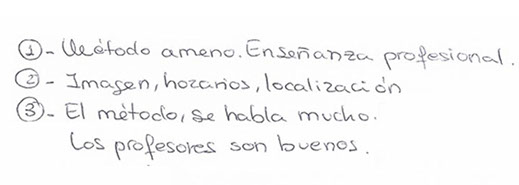 ①- Método ameno. Enseñanza profesional.
②- Imagen, horarios, localización
③- El método, se habla mucho.
Los profesores son buenos.